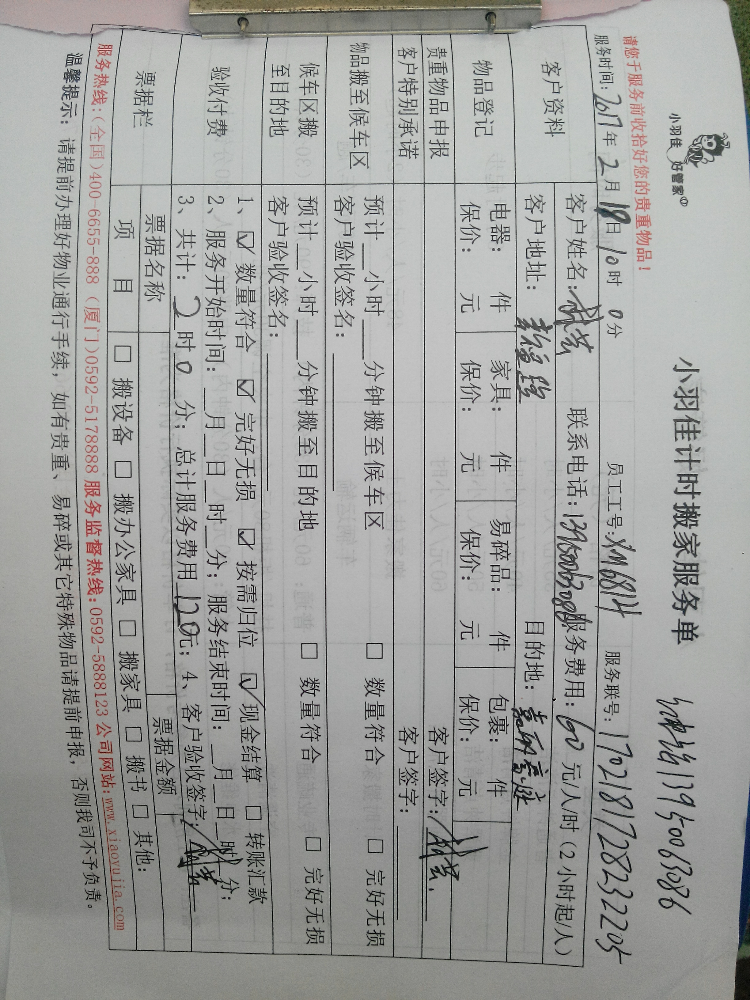 小羽佳 好管家
小羽佳计时搬家服务单
13950063086
请您于服务前收拾好您的贵重物品！
服务时间：2017年2月18日10时0分 员工工号：XM6814 服务联号：170218172823 2205
客户资料
客户姓名： 联系电话：13950063086 服务费用：60元/人/时(2小时起/人)
客户地址： 目的地：
物品登记
电器： 件 家具： 件 易碎品： 件 包裹： 件
保价： 元 保价： 元 保价： 元 保价： 元
贵重物品申报 客户签字：
客户特别承诺 客户签字：
物品搬至候车区
预计__小时___分钟搬至候车区 □ 数量符合 □ 完好无损
客户验收签名：
候车区搬至目的地
预计__小时___分钟搬至目的地 □ 数量符合 □ 完好无损
客户验收签名：
验收付费
1、☑ 数量符合 ☑ 完好无损 ☑ 按需归位 ☑ 现金结算 □ 转账汇款
2、服务开始时间：__月__日__时__分；服务结束时间：__月__日__时__分；
3、共计：2时0分；总计服务费用120元；4、客户验收签字：
票据栏
票据名称 票据金额
项 目 □ 搬设备 □ 搬办公家具 □ 搬家具 □ 搬书 □ 其他：
服务热线：(全国)400-6655-888 (厦门)0592-5178888 服务监督热线：0592-5888123 公司网站：www.xiaoyujia.com
温馨提示：请提前办理好物业通行手续，如有贵重、易碎或其它特殊物品请提前申报，否则我司不予负责。